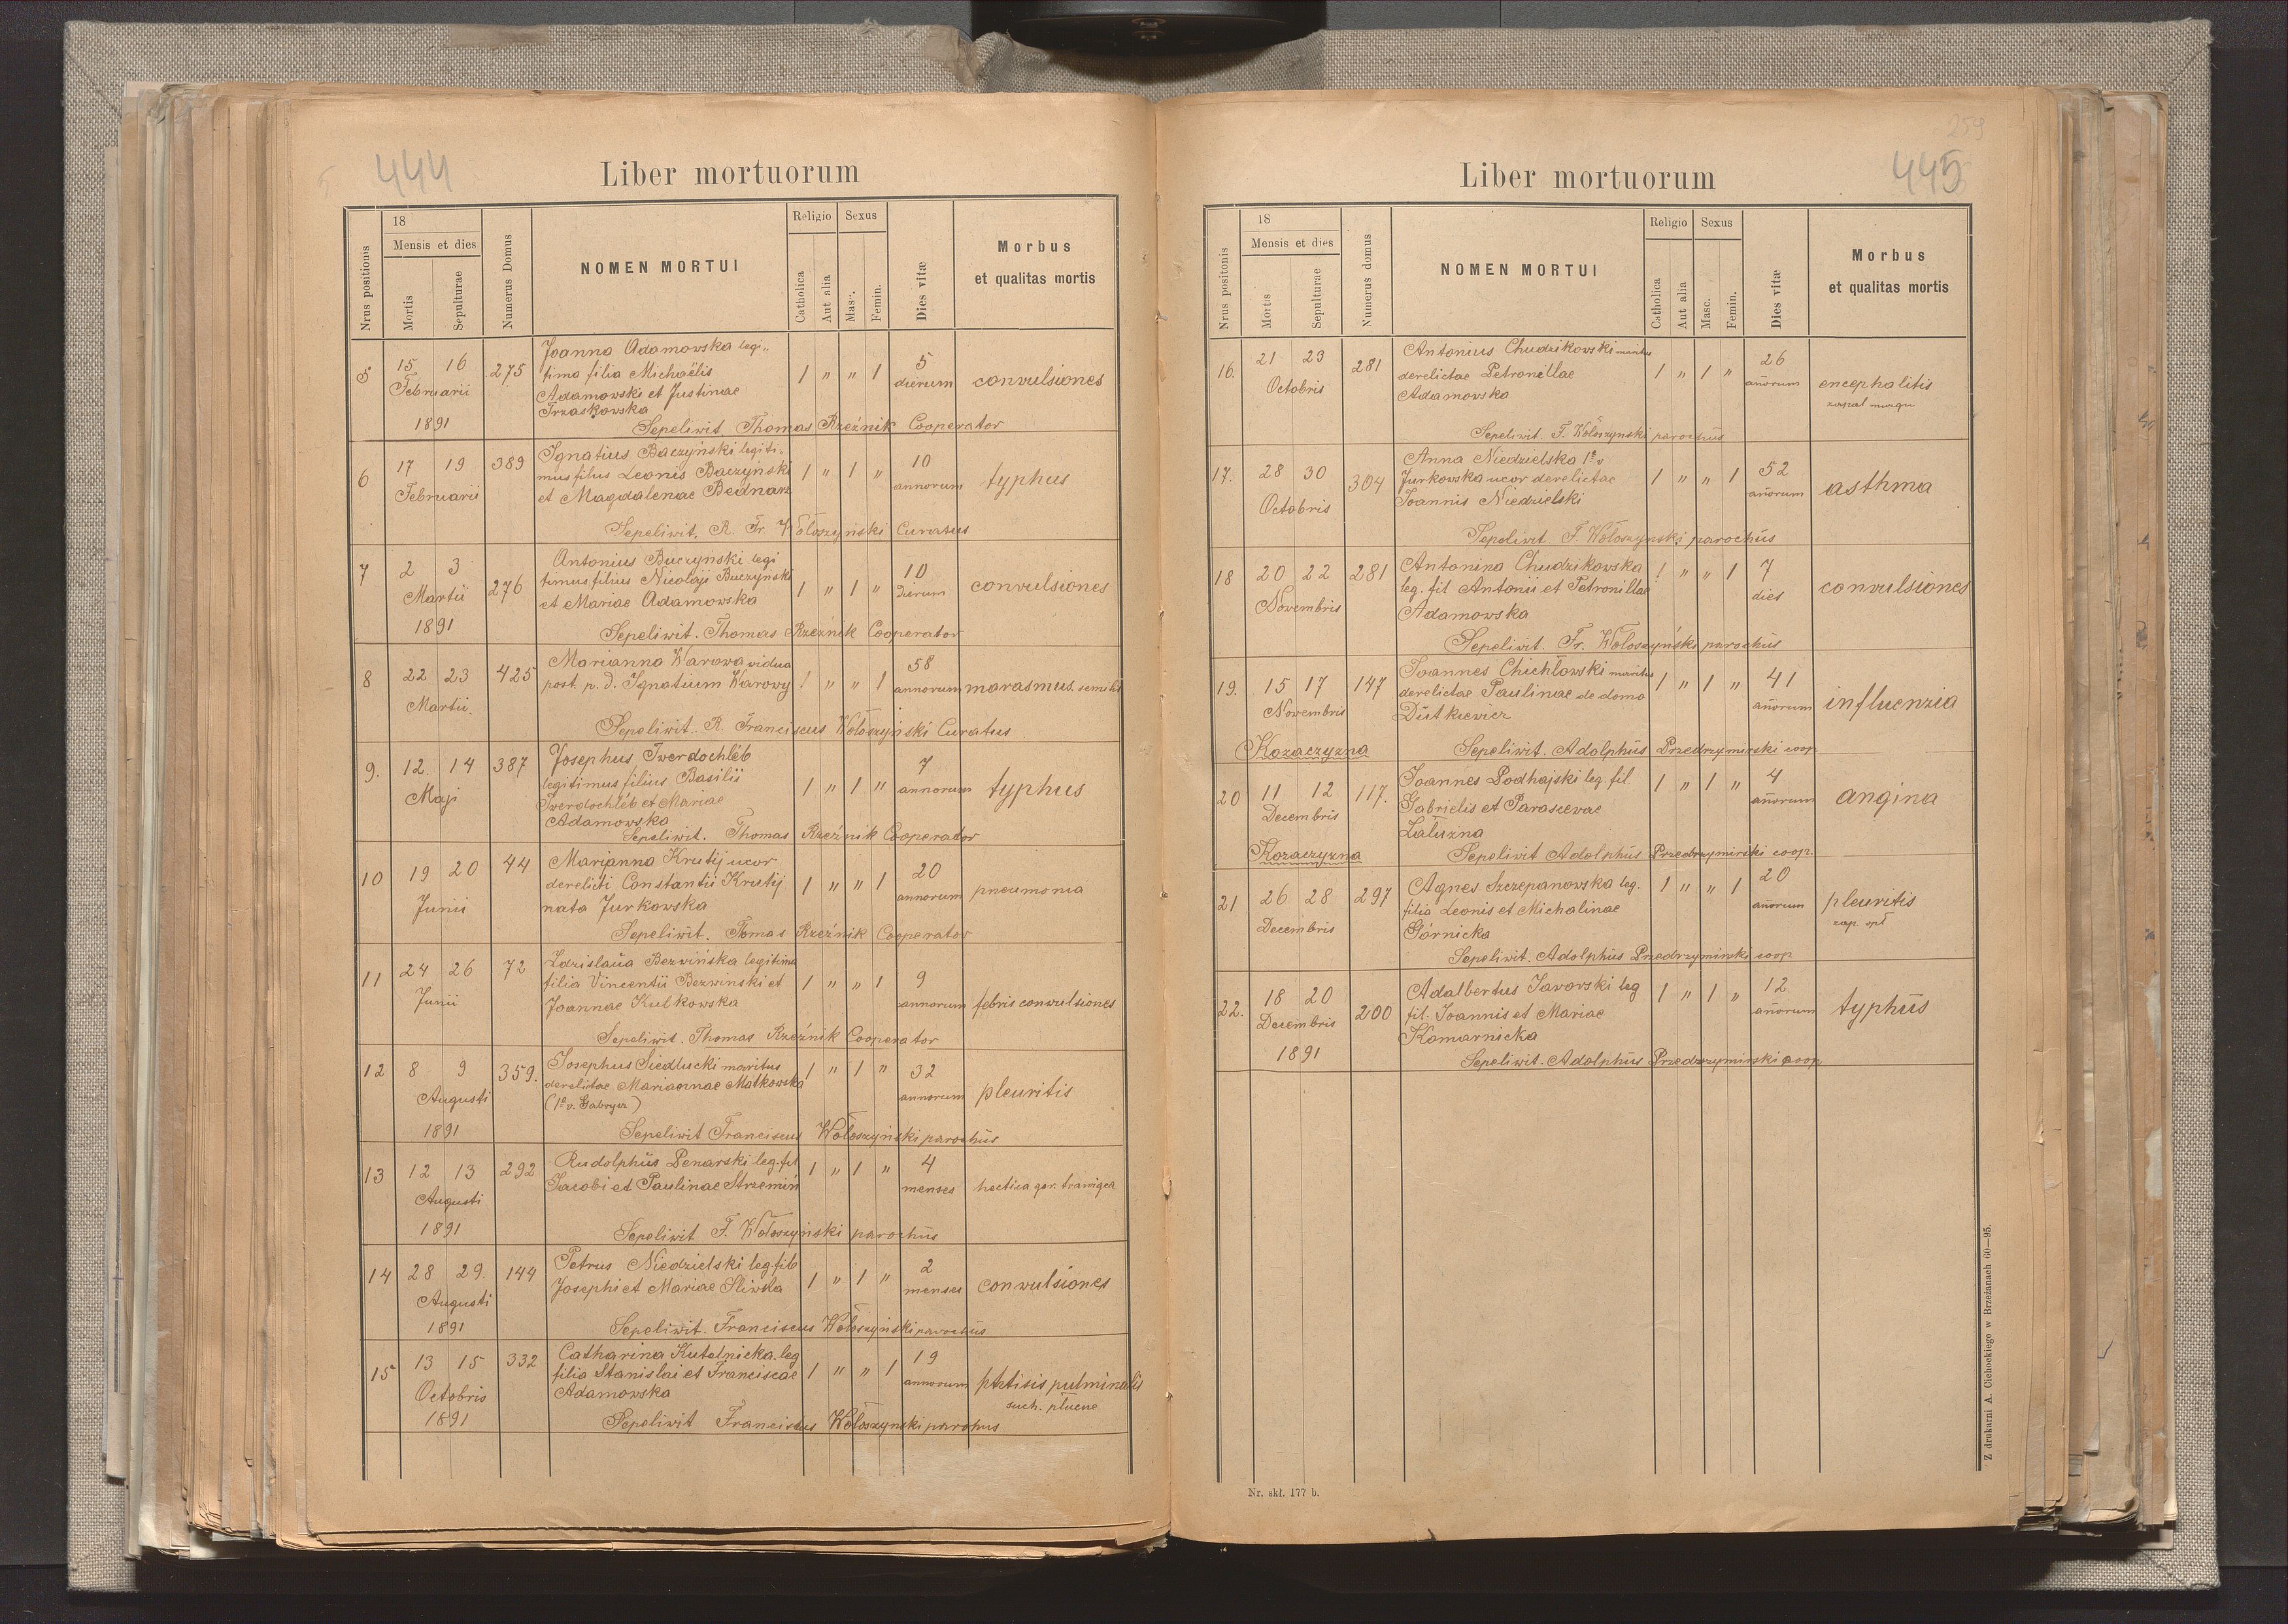 444
Liber mortuorum
Nrus positionis
18
Mensis et dies
Mortis
Sepulturae
Numerus Domus
NOMEN MORTUI
Religio
Catholica
Aut alia
Sexus
Masc.
Femin.
Dies vitæ
Morbus
et qualitas mortis
5 15 16 Februarii 1891 275
Joanna Adamowska legi-
tima filia Michaëlis
Adamowski et Justinae
Trzaskowska
1 " " 1 5 dierum convulsiones
Sepeliwit Thomas Rzeźnik Cooperator
6 17 19 Februarii 389
Ignatius Baczyński legiti-
mus filius Leonis Baczyński
et Magdalenae Bednarz
1 " 1 " 10 annorum typhus
Sepeliwit. R. Fr. Wołoszyński Curatus
7 2 3 Martii 1891 276
Antonius Buczyński legi
timus filius Nicolaji Buczyński
et Mariae Adamowska
1 " 1 " 10 dierum convulsiones
Sepeliwit. Thomas Rzeźnik Cooperator
8 22 23 Martii. 425
Marianna Warowa vidua
post. p. d. Ignatium Warowy
1 " " 1 58 annorum marasmus. senilis
Sepeliwit. R. Franciscus Wołoszyński Curatus
9. 12. 14 Maji 387
Josephus Twerdochléb
legitimus filius Basilii
Twerdochléb et Mariae
Adamowska
1 " 1 " 7 annorum typhus
Sepeliwit. Thomas Rzeźnik Cooperator
10 19 20 Junii 44
Marianna Krutij uxor
derelicti Constantii Krutij
nata Jurkowska
1 " " 1 20 annorum pneumonia
Sepeliwit. Tomas Rzeźnik Cooperator
11 24 26 Junii 72
Zdzislaŭa Bezwińska legitima
filia Vincentii Bezwinski et
Joannae Kulkowska
1 " " 1 9 annorum febris convulsiones
Sepeliwit. Thomas Rzeźnik Cooperator
12 8 9 Augusti 1891 359.
Josephus Siedlucki maritus
derelictae Mariannae Matkowska
(1º v. Gabryer)
1 " 1 " 32 annorum pleuritis
Sepeliwit Franciscus Wołoszyński parochŭs
13 12 13 Augusti 1891 292
Rudolphŭs Penarski leg. fil
Jacobi et Paulinae Strzemiń
1 " 1 " 4 menses hectica gor. trawiąca
Sepeliwit F. Wołoszyński parochŭs
14 28 29. Augusti 1891 144
Petrus Niedzielski leg. fil
Josephi et Mariae Sliwska
1 " 1 " 2 menses convulsiones
Sepeliwit. Franciscus Wołoszyński parochŭs
15 13 15 Octobris 1891 332
Catharina Kutelnicka. leg
filia Stanislai et Franciscae
Adamowska
1 " " 1 19 annorum phtisis pulminalis
such. płucne
Sepeliwit Franciscus Wołoszynski parohus
259
445
Liber mortuorum
Nrus positonis
18
Mensis et dies
Mortis
Sepulturae
Numerus domus
NOMEN MORTUI
Religio
Catholica
Aut alia
Sexus
Masc.
Femin.
Dies vitæ
Morbus
et qualitas mortis
16. 21 23 Octobris 281
Antonius Chudzikowski maritus
derelictae Petronellae
Adamowska
1 " 1 " 26 añorum encephalitis
zapal mózgu
Sepeliwit. F. Wŏłoszynski parochŭs
17. 28 30 Octobris 304
Anna Niedzielska 1º v
Jurkowska ucor derelictae
Joannis Niedzielski
1 " " 1 52 añorum asthma
Sepeliwit F. Wołoszynski parochŭs
18 20 22 Novembris 281
Antonina Chudzikowska
leg. fil Antonii et Petronillae
Adamowska
1 " " 1 7 dies convulsiones
Sepeliwit. Fr. Wołoszyński parochŭs
19. 15 17 Novembris 147
Joannes Chichłowski maritus
derelictae Paulinae de domo
Dŭtkiewicz
1 " 1 " 41 añorum influenzia
Kozaczyzna Sepeliwit. Adolphŭs Przedrzymirski coop
20 11 12 Decembris 117.
Joannes Podhajski leg. fil.
Gabrielis et Parascevae
Załŭzna
1 " 1 " 4 añorum angina
Kozaczyzna Sepeliwit Adolphŭs Przedrzymirski coop.
21 26 28 Decembris 297
Agnes Szczepanowska leg.
filia Leonis et Michalinae
Górnicka
1 " " 1 20 añorum pleuritis
Sepeliwit. Adolphŭs Przedrzymirski coop
22. 18 20 Decembris 1891 200
Adalbertus Javorski leg
fil. Joannis et Mariae
Komarnicka
1 " 1 " 12 añorum typhŭs
Sepeliwit. Adolphŭs Przedrzymirski coop
Nr. skł. 177 b.
Z drukarni A. Ciehockiego w Brzeżanach 60—95.